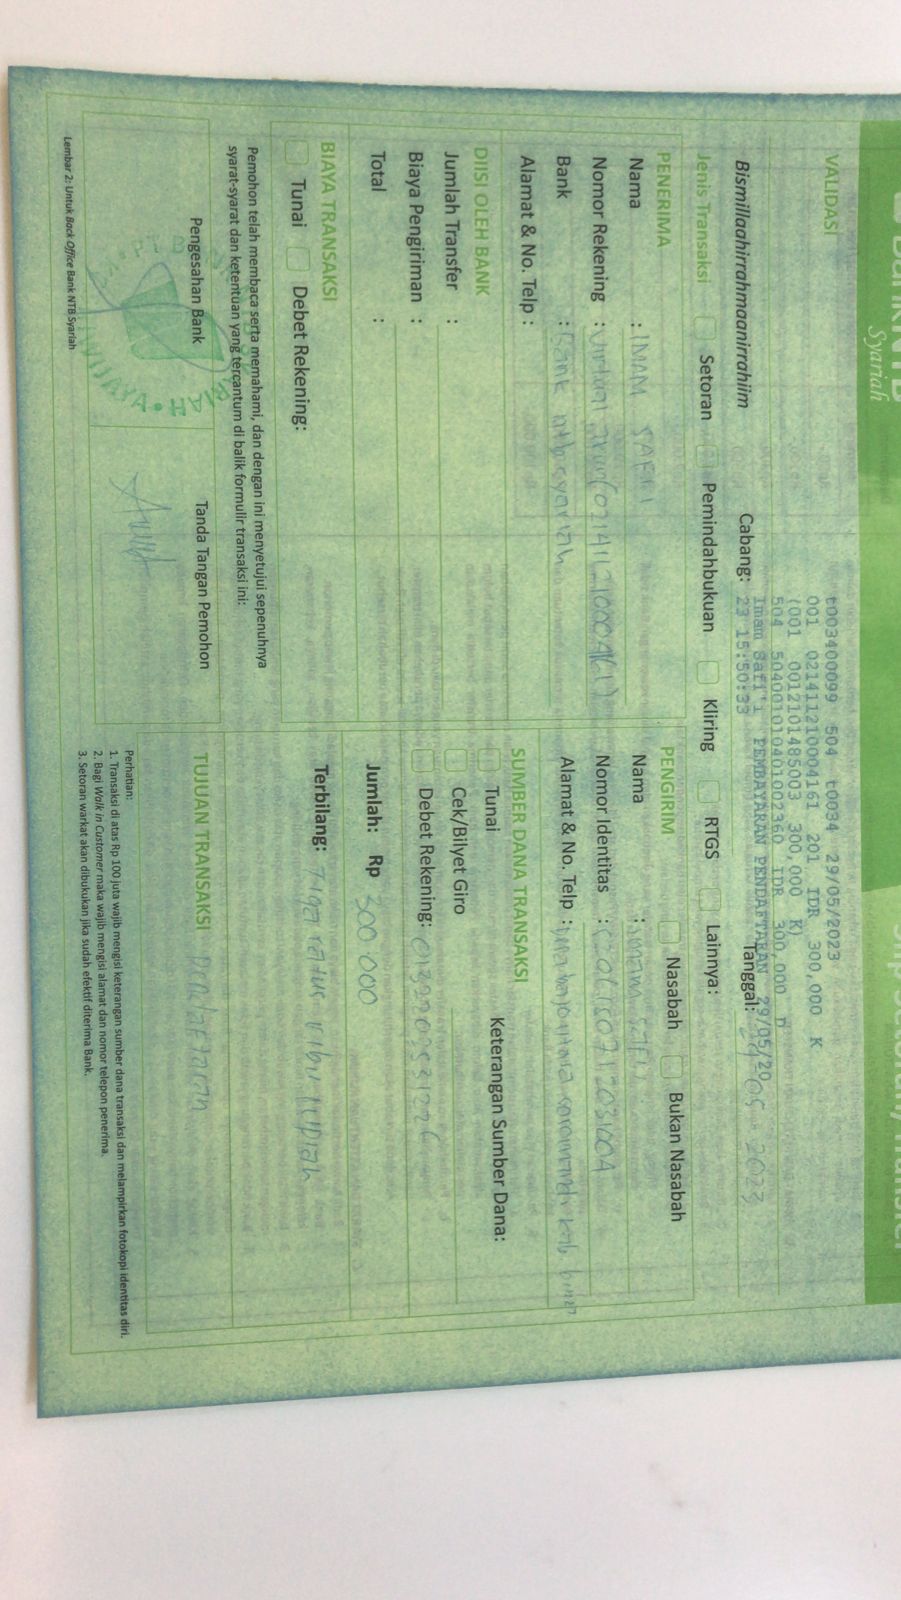 Bank NTB
Syariah
VALIDASI
t003400099 504 t0034 29/05/2023
001 0214112100004161 201 IDR 300,000 K
(001 0012101485003 300,000 K)
504 504001010401002360 IDR 300,000 D
Imam Safi'i PEMBAYARAN PENDAFTARAN 29/05/20
23 15:50:33
Bismillaahirrahmaanirrahiim
Cabang:
Tanggal: 29-05-2023
Jenis Transaksi
Setoran
Pemindahbukuan
Kliring
RTGS
Lainnya:
PENERIMA
Nama : IMAM SAFI'I
Nomor Rekening : Virtual
Bank : Bank ntb syariah
Alamat & No. Telp :
PENGIRIM
Nasabah
Bukan Nasabah
Nama : imam safi'i
Nomor Identitas :
Alamat & No. Telp :
DIISI OLEH BANK
Jumlah Transfer :
Biaya Pengiriman :
Total :
SUMBER DANA TRANSAKSI
Tunai
Keterangan Sumber Dana:
Cek/Bilyet Giro
Debet Rekening:
Jumlah: Rp 300 000
Terbilang: Tiga ratus ribu rupiah
BIAYA TRANSAKSI
Tunai
Debet Rekening:
Pemohon telah membaca serta memahami, dan dengan ini menyetujui sepenuhnya
syarat-syarat dan ketentuan yang tercantum di balik formulir transaksi ini:
Pengesahan Bank
Tanda Tangan Pemohon
TUJUAN TRANSAKSI Pendaftaran
Perhatian:
1. Transaksi di atas Rp 100 juta wajib mengisi keterangan sumber dana transaksi dan melampirkan fotokopi identitas diri.
2. Bagi Walk in Customer maka wajib mengisi alamat dan nomor telepon penerima.
3. Setoran warkat akan dibukukan jika sudah efektif diterima Bank.
Lembar 2: Untuk Back Office Bank NTB Syariah